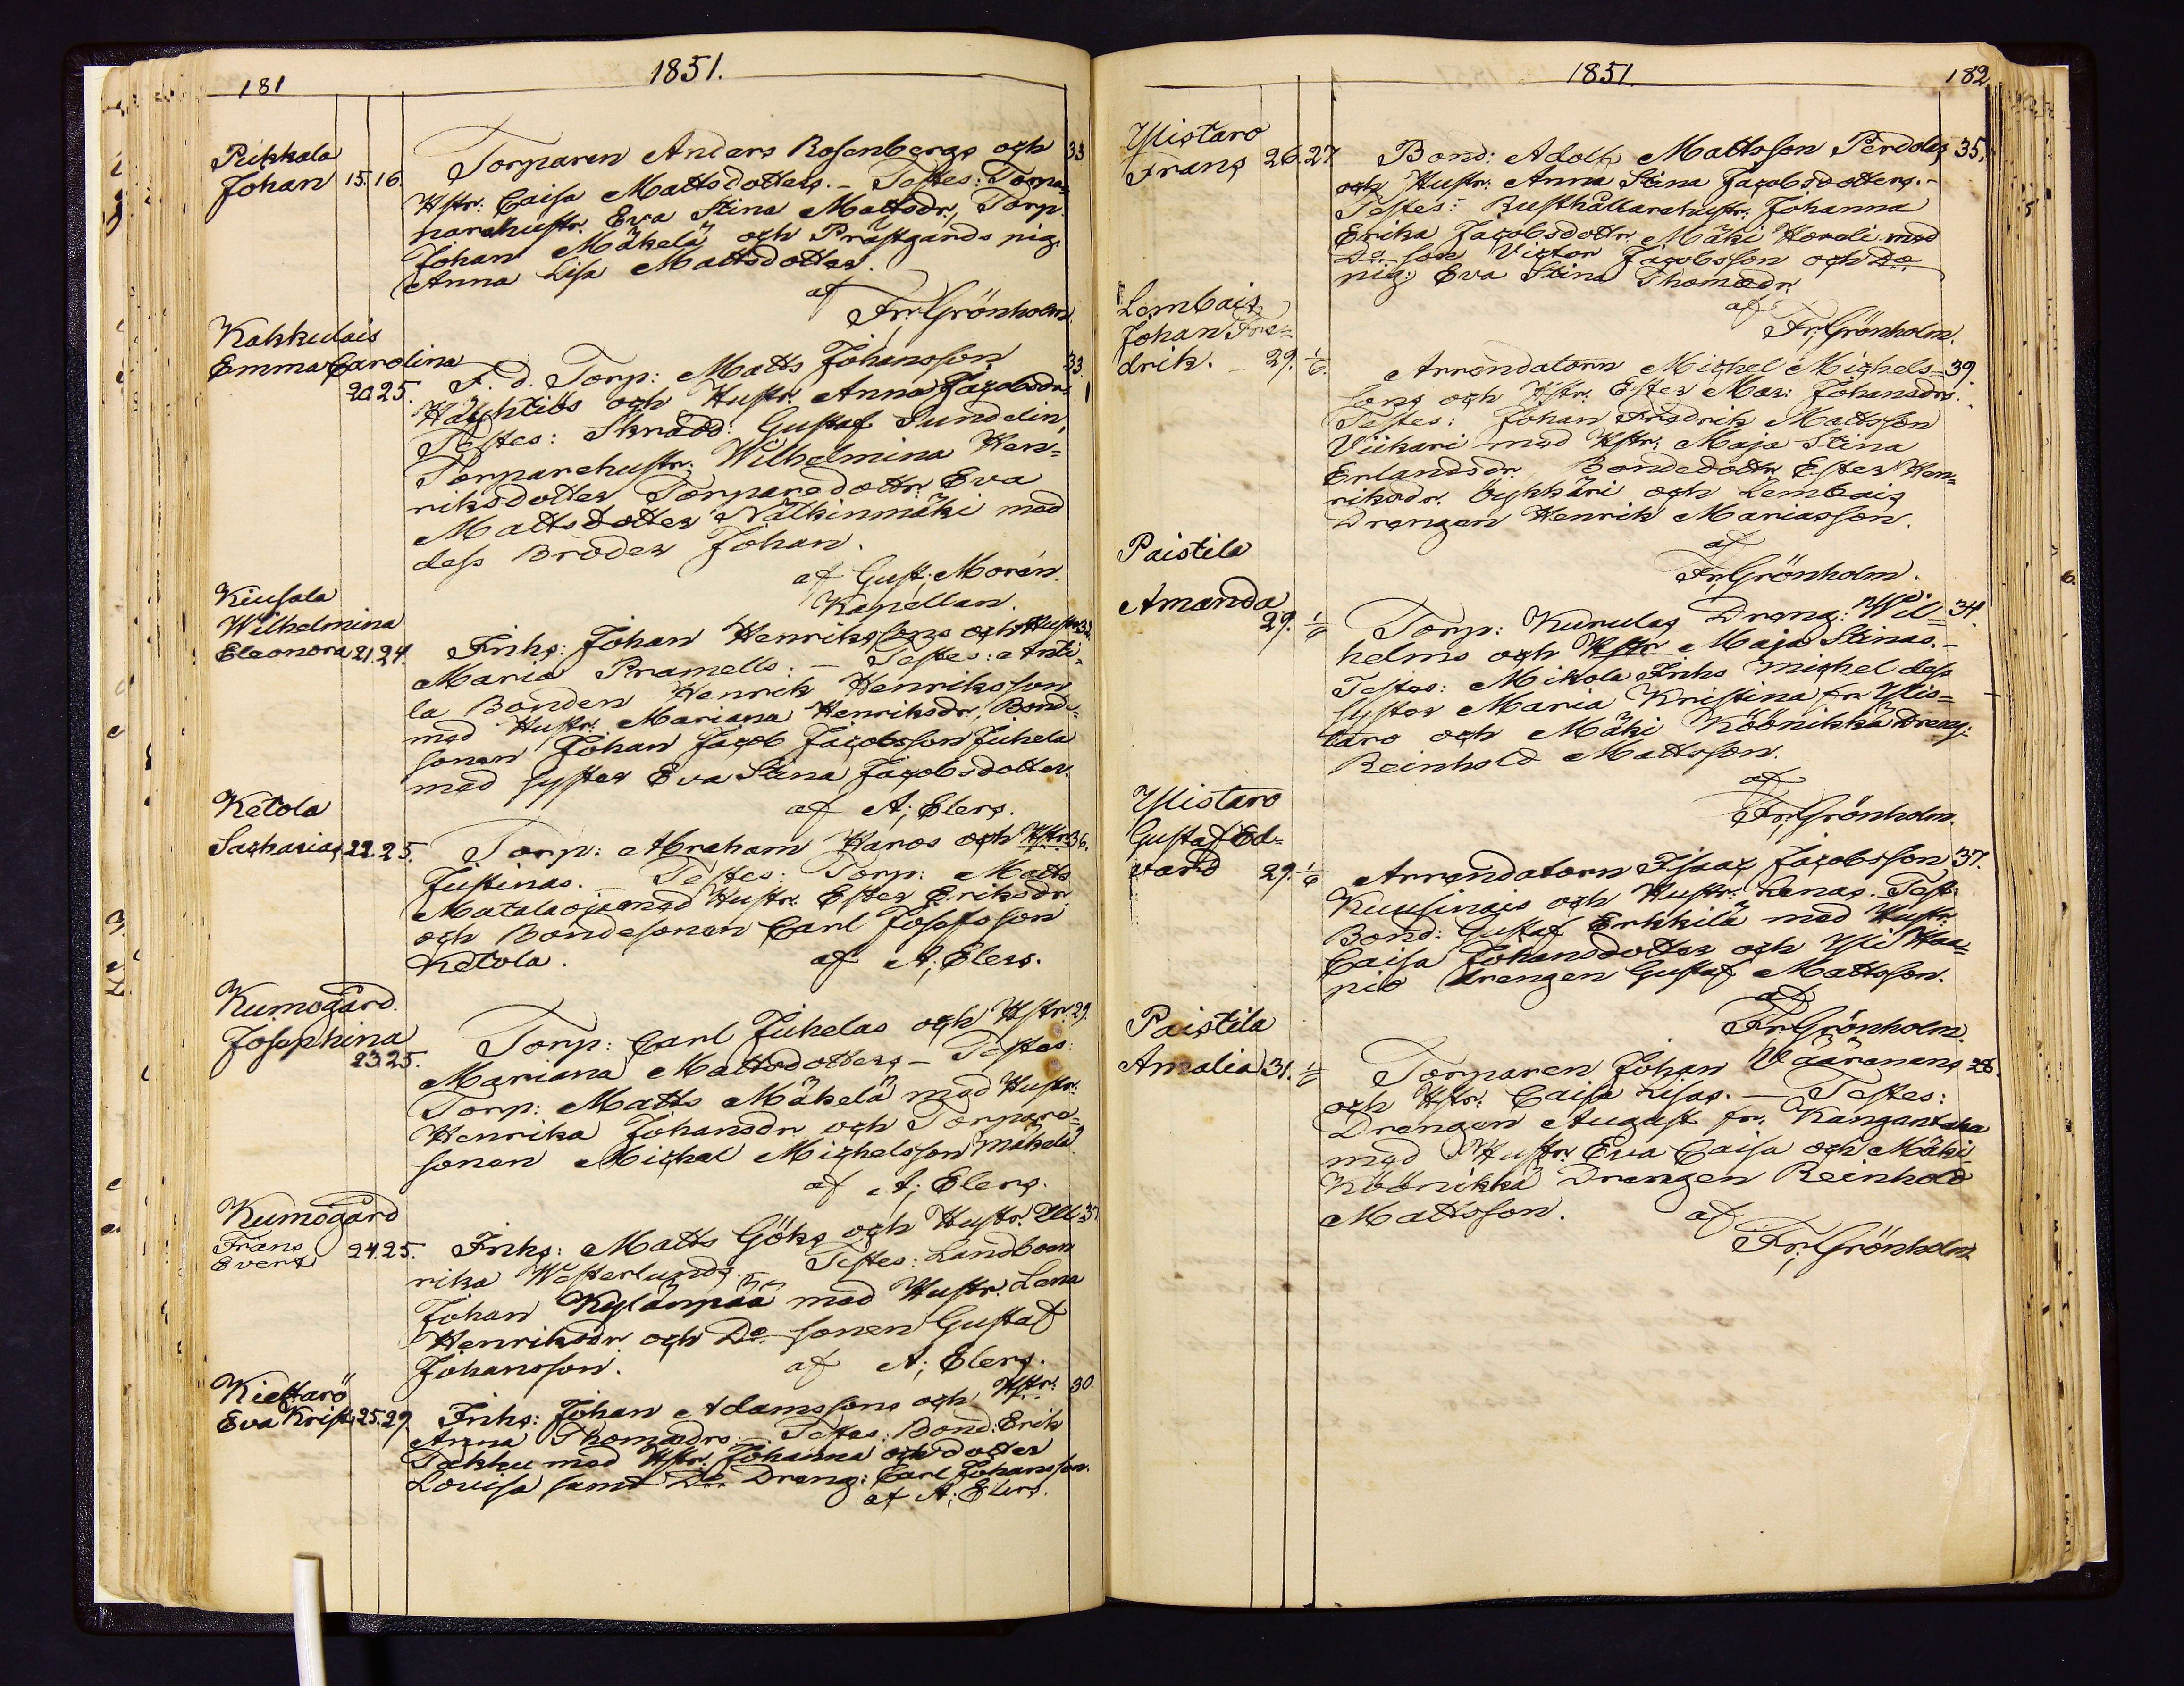 181
1851.
Peikkala
Johan 15. 16.
Torparen Anders Rosenbergs och 33
Hstr: Caisa Mattsdotters. - Testes: Torpa=
narehustr. Eva Stina Mattsdr, Torp.
Johan Mäkelä och Prästgårds pig.
Anna Lisa Mattsdotter.
af
Fr; Grönholm.
Kakkulais
Emma Carolina
20 25.
F. d. Torp: Matts Johansson 33.
och Hustr. Anna Jacobsdr.
Testes: Skrädd: Gustaf Sundelin,
Torparehustr. Wilhelmina Hen=
riksdotter Torparedottr. Eva
Mattsdotter Nälkinmäki med
dess Broder Johan.
af Gust; Morén.
Kapellan.
Kiusala
Wilhelmina
Eleonora 21. 24.
Inhs: Johan Henrikssons och Hustr. 32.
Maria Pramells. - Testes: Anti=
la Bonden Henrik Henriksson
med Hustr. Mariana Henriksdr, Bonde=
sonen Johan Jacob Jacobsson Juhela
med syster Eva Stina Jacobsdotter.
af A; Elers.
Ketola
Sacharias 22. 25.
Torp: Abraham Haros och Hstr. 36.
Justinas. - Testes: Torp: Matts
Matalaoja med Hustr. Ester Eriksdr.
och Bondesonen Carl Josefsson
Ketola. af A; Elers.
Kumogård.
Josephina
23 25.
Torp: Carl Juhelas och Hstr. 29.
Mariana Mattsdotters - Testes:
Torp: Matts Mäkelä med Hustr.
Henrika Johansdr. och Torpare=
sonen Michel Michelsson Mäkelä.
af A; Elers.
Kumogård
Frans
Evert 24. 25.
Inhs: Matts Göks och Hustr. Ul= 37
rika Westerlunds. - Testes: Landboen
Johan Kylänpää med Hustr. Lena
Henriksdr. och Do. sonen Gustaf
Johansson. af A; Elers.
Kiettarö
Eva Krist. 25. 29.
Inhs: Johan Adamssons och Hstr: 30.
Anna Thomædrs. - Testes: Bond: Erik
Dakku med Hstr. Johanna och dotter
Lovisa samt Do. Dreng: Carl Johansson.
af A; Elers.
1851.
182
Ylistaro
Frans 26. 27
Bond: Adolf Mattsson Perdolas 35.
och Hustr. Anna Stina Jacobsdotters. -
Testes: Rusthållarehustr: Johanna
Erika Jacobsdottr. Mäki Hordi med
Do son Victor Jacobsson och Do
pig: Eva Stina Thomædr.
af
Fr; Grönholm.
Lembais
Johan Fre=
drik. 29. 1/6.
Arrendatorn Michel Michels= 39.
sons och Hstr. Ester Mar: Johansdrs.
Testes: Johan Fredrik Mattsson
Viikari med Hstr: Maja Stina
Erlandsdr. Bondedottr. Ester Hen=
riksdr. och Lembais
Drengen Henrik Mariasson.
af
Fr; Grönholm.
Paistila
Amanda
29. 1/6
Torp: Kurulas Dreng: Wil= 34.
helms och Hstr. Maja Stinas. -
Testes: Mikola Inhs Michel dess
syster Maria Kristina fr. Ylis=
taro och Mäki Köönikkä Dreng:
Reinhold Mattsson.
af
Fr; Grönholm.
Ylistaro
Gustaf Ed=
vard 29. 1/6
Arrendatorn Isaac Jacobsson 37.
Kuusinais och Hustr. Lenas. Test:
Bond: Gustaf Erkkilä med Hustr.
Caisa Johansdotter och Yli Haa=
pio drengen Gustaf Mattsson.
af
Fr; Grönholm.
Paistila
Amalia 31. 1/6
Torparen Johan Väärenens 28.
och Hstr. Caisa Lisas. - Testes:
Drengen August fr. Kangantaka
med Hustr. Eva Caisa och Mäki
Köönikkä Drengen Reinhold
Mattsson. af
Fr; Grönholm.